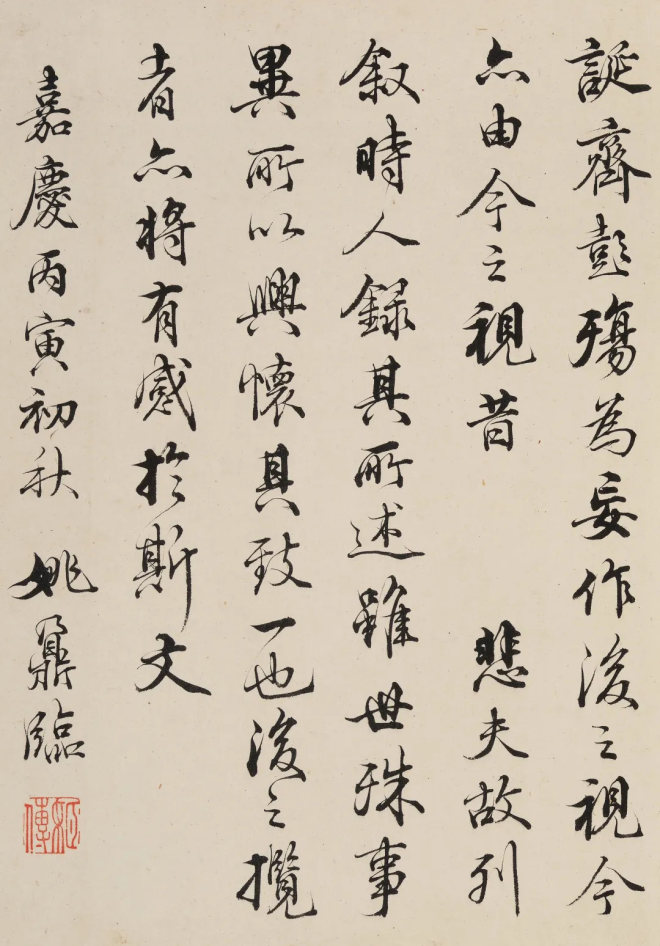 誕齊彭殤為妄作後之視今
亦由今之視昔 悲夫故列
叙時人錄其所述雖世殊事
異所以興懷其致一也後之攬
者亦將有感於斯文
嘉慶丙寅初秋 姚鼐臨